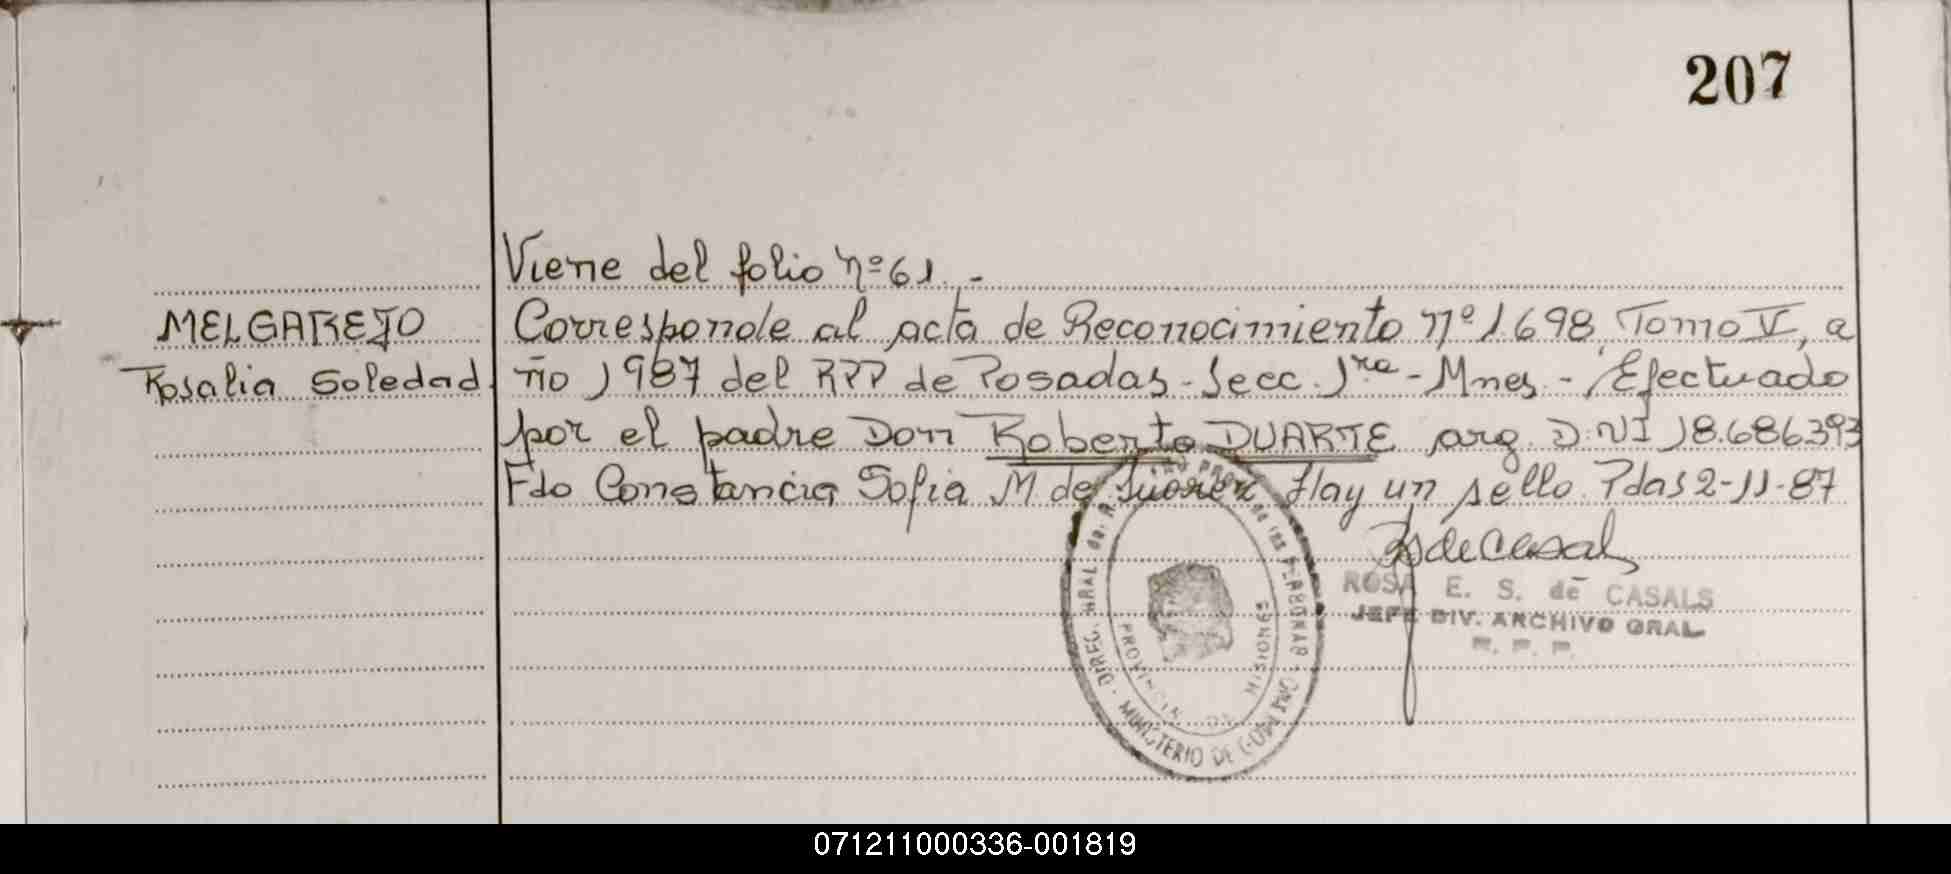 207
Viene del folio nº 61.-
MELGAREJO
Rosalia Soledad.
Corresponde al acta de Reconocimiento nº 1698, Tomo V, a
ño 1987 del RPP de Posadas - Secc. 1ra - Mnes - Efectuado
por el padre Don Roberto DUARTE arg. D.NI 18.686.393
Fdo Constancia Sofia M de Suarez Hay un sello. Pdas 2-11-87
ROSA E. S. de CASALS
JEFE DIV. ARCHIVO GRAL
R. P. P.
DIREC. GRAL de PROV. de las PERSONAS
MINISTERIO DE GOBIERNO
PROVINCIA DE MISIONES
071211000336-001819